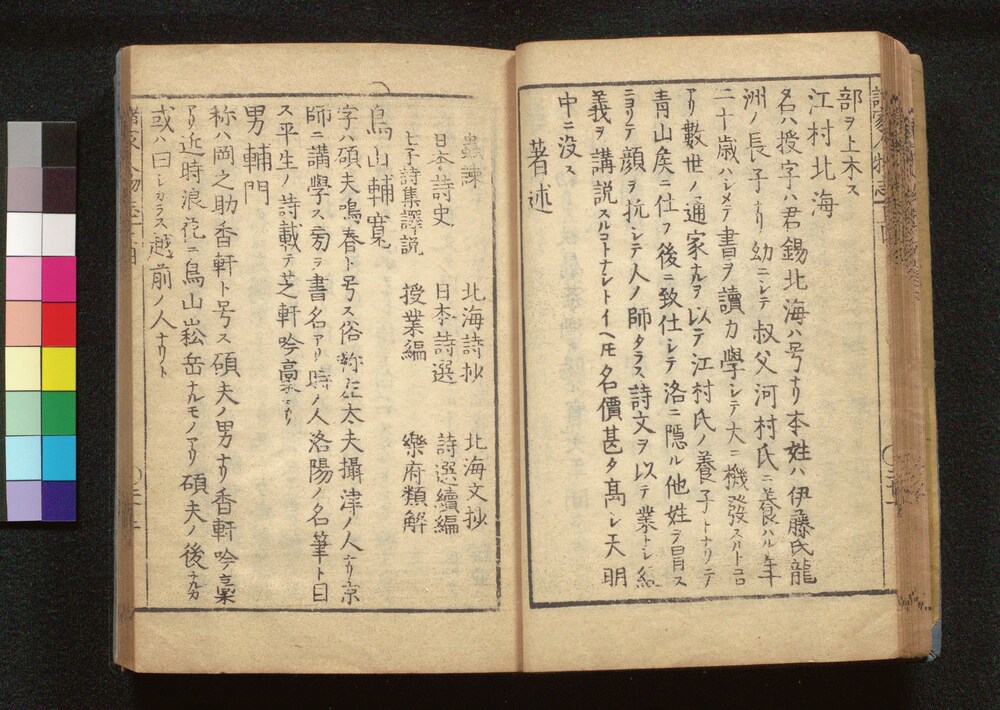 部ヲ上木ス
江村北海
名ハ授字ハ君錫北海ハ号ナリ本姓ハ伊藤氏龍
洲ノ長子ナリ幼ニシテ叔父河村氏ニ養ハル年
二十歳ハシメテ書ヲ讀力學シテ大ニ機發スルトコロ
アリ數世ノ通家ナルヲ以テ江村氏ノ養子トナリニテ
青山矦ニ仕フ後ニ致仕シテ洛ニ隠ル他姓ヲ冒ス
ニヨリテ顔ヲ抗シテ人ノ師タラス詩文ヲ以テ業トシ
義ヲ講説スルコトナシトイヘ𪜈名價甚タ高シ天明
中ニ没ス
著述
蟲諫 北海詩抄 北海文抄
日本詩史 日本詩選 詩選續編
七才子詩集譯説 授業編 樂府類解
鳥山輔寛
字ハ碩夫鳴春ト号ス俗称左太夫攝津ノ人ナリ京
師ニ講學ス旁ヲ書名アリ時ノ人洛陽ノ名筆ト曰
ス平生ノ詩載テ芝軒吟稾ニアリ
男輔門
称ハ岡之助香軒ト号ス碩夫ノ男ナリ香軒吟稾
アリ近時浪花ニ鳥山崧岳ナルモノアリ碩夫ノ後ナルカ
或ハ曰シカラス越前ノ人ナリト